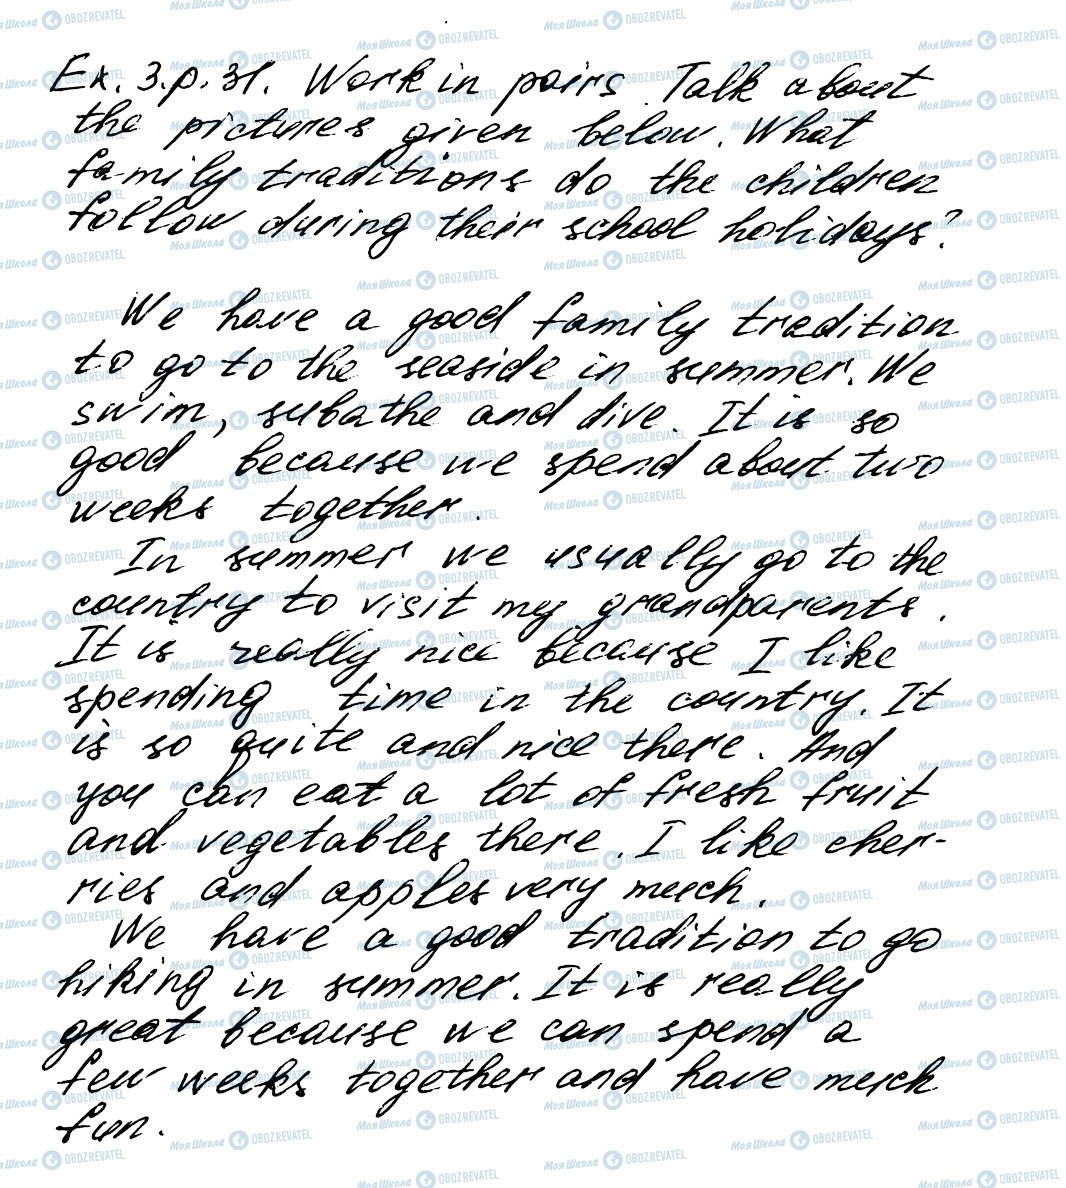 Ex. 3. p. 31. Work in pairs. Talk about
the pictures given below. What
family traditions do the children
follow during their school holidays?
We have a good family tradition
to go to the seaside in summer. We
swim, subathe and dive. It is so
good because we spend about two
weeks together.
In summer we usually go to the
country to visit my grandparents.
It is really nice because I like
spending time in the country. It
is so quite and nice there. And
you can eat a lot of fresh fruit
and vegetables there. I like cher-
ries and apples very much.
We have a good tradition to go
hiking in summer. It is really
great because we can spend a
few weeks together and have much
fun.
Моя Школа OBOZREVATEL